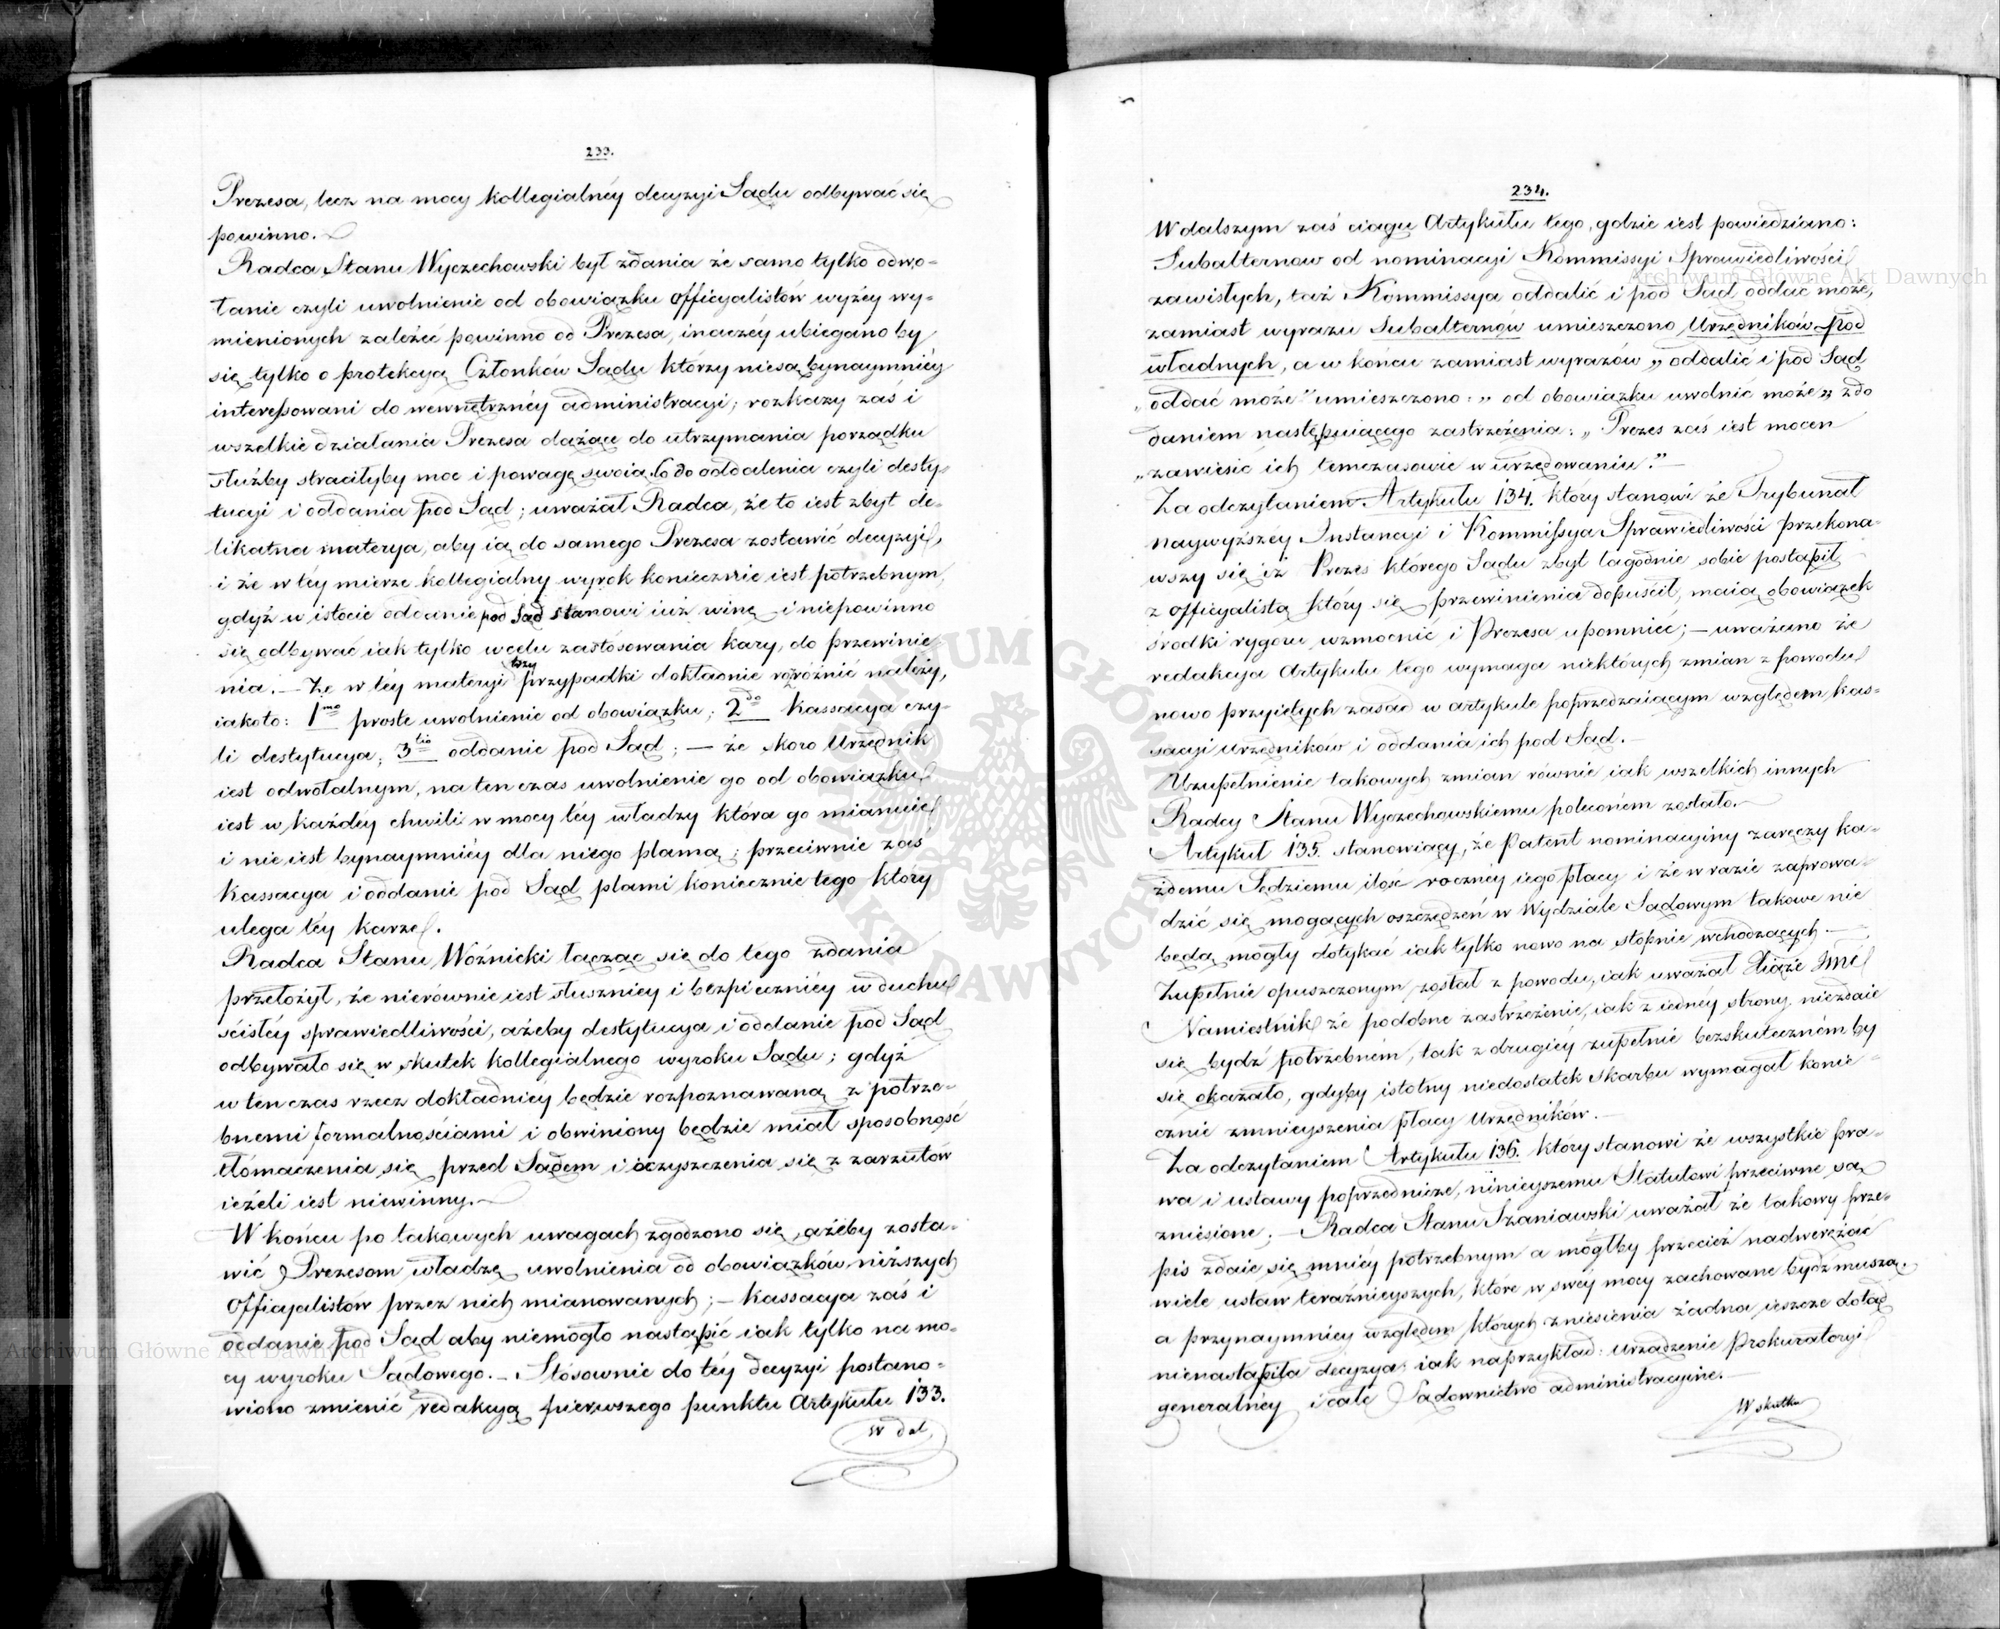 233.
Prezesa, lecz na mocy kollegialnéy decyzyi Sądu odbywać się
powinno.
Radca Stanu Wyczechowski był zdania że samo tylko odwo-
łanie czyli uwolnienie od obowiązku officyalistów wyżéy wy-
mienionych zależeć powinno od Prezesa, inaczéy ubiegano by
się tylko o protekcyą Członków Sądu którzy niesą bynaymniéy
interessowani do wewnętrznéy administracyi; rozkazy zaś i
wszelkie działania Prezesa dążące do utrzymania porządku
służby straciłyby moc i powagę swoią. Co do oddalenia czyli desty-
tucyi i oddania pod Sąd; uważał Radca, że to iest zbyt de-
likatna materya, aby ią do samego Prezesa zostawić decyzyi,
i że w téy mierze kollegialny wyrok koniecznie iest potrzebnym,
gdyż w istocie oddanie pod Sąd stanowi iuż winę i niepowinno
się odbywać iak tylko w celu zastósowania kary, do przewinie-
nia. – Że w téy materyi trzy przypadki dokładnie rozróżnić należy,
iakoto: 1mo proste uwolnienie od obowiązku; 2do Kassacya czy-
li destytucya; 3tio oddanie pod Sąd; – że skoro Urzędnik
iest odwołalnym, na ten czas uwolnienie go od obowiązku
iest w każdey chwili w mocy téy władzy która go mianuie
i nie iest bynaymniéy dla niego plamą; przeciwnie zaś
Kassacya i oddanie pod Sąd plami koniecznie tego który
ulega téy karze.
Radca Stanu Woźnicki łącząc się do tego zdania
przełożył, że nierównie iest słuszniey i bezpieczniéy w duchu
ścisłéy sprawiedliwości, ażeby destytucya i oddanie pod Sąd
odbywało się w skutek kollegialnego wyroku Sądu; gdyż
w ten czas rzecz dokładniéy będzie rozpoznawaną z potrze-
bnemi formalnościami i obwiniony będzie miał sposobność
tłómaczenia się przed Sądem i oczyszczenia się z zarzutów
ieżeli iest niewinny. –
W końcu po takowych uwagach zgodzono się, ażeby zosta-
wić Prezesom władzę uwolnienia od obowiązków niższych
Officyalistów przez nich mianowanych; – Kassacya zaś i
oddanie pod Sąd aby niemogło nastąpić iak tylko na mo-
cy wyroku Sądowego. – Stósownie do téy decyzyi postano-
wiono zmienić redakcyą pierwszego punktu Artykułu 133.
W dal
234.
W dalszym zaś ciągu Artykułu tego, gdzie iest powiedziano:
Subalternow od nominacyi Kommissyi Sprawiedliwości
zawisłych, taż Kommissya oddalić i pod Sąd oddać może,
zamiast wyrazu Subalternów umieszczono Urzędników Pod
władnych, a w końcu zamiast wyrazów „oddalić i pod Sąd
„oddać może" umieszczono: „od obowiązku uwolnić może„ z do
daniem następuiącego zastrzeżenia: „Prezes zaś iest mocen
„zawiesić ich tymczasowie w urzędowaniu." –
Za odczytaniem Artykułu 134. który stanowi że Trybunał
naywyższéy Instancyi i Kommissya Sprawiedliwości przekona-
wszy się iż Prezes którego Sądu zbyt łagodnie sobie postąpił
z officyalistą który się przewinienia dopuścił, maią obowiązek
środki rygoru wzmocnić i Prezesa upomnieć; – uważano że
redakcya Artykułu tego wymaga niektórych zmian z powodu
nowo przyiętych zasad w artykule poprzedzaiącym względem kas-
sacyi urzędników i oddania ich pod Sąd. –
Uzupełnienie takowych zmian równie iak wszelkich innych
Radcy Stanu Wyczechowskiemu poleconém zostało. –
Artykuł 135. stanowiący, że Patent nominacyiny zaręczy ka-
żdemu Sędziemu ilość roczney iego płacy i że w razie zaprowa-
dzić się mogących oszczędzeń w Wydziale Sądowym takowe nie
będą mogły dotykać iak tylko nowo na stopnie wchodzących. –
Zupełnie opuszczonym został z powodu, iak uważał Xiąże Jmć
Namiestnik że podobne zastrzeżenie, iak z iednéy strony niezdaie
się bydź potrzebném, tak z drugiéy zupełnie bezskuteczném by
się okazało, gdyby istotny niedostatek Skarbu wymagał konie-
cznie zmnieyszenia płacy Urzędników. –
Za odczytaniem Artykułu 136. który stanowi że wszystkie pra-
wa i ustawy poprzednicze, ninieyszemu Statutowi przeciwne są
zniesione; – Radca Stanu Szaniawski uważał że takowy prze-
pis zdaie się mniéy potrzebnym a mógłby przecież nadwerężać
wiele ustaw teraźnieyszych, które w swéy mocy zachowane bydź muszą,
a przynaymniéy względem których zniesienia żadna ieszcze dotąd
nienastąpiła decyzya; iak naprzykład: urządzenie Prokuratoryi
generalnéy i całe Sądownictwo administracyine. –
W skutku
Archiwum Główne Akt Dawnych
Archiwum Główne Akt Dawnych
ARCHIWUM GŁÓWNE AKT DAWNYCH